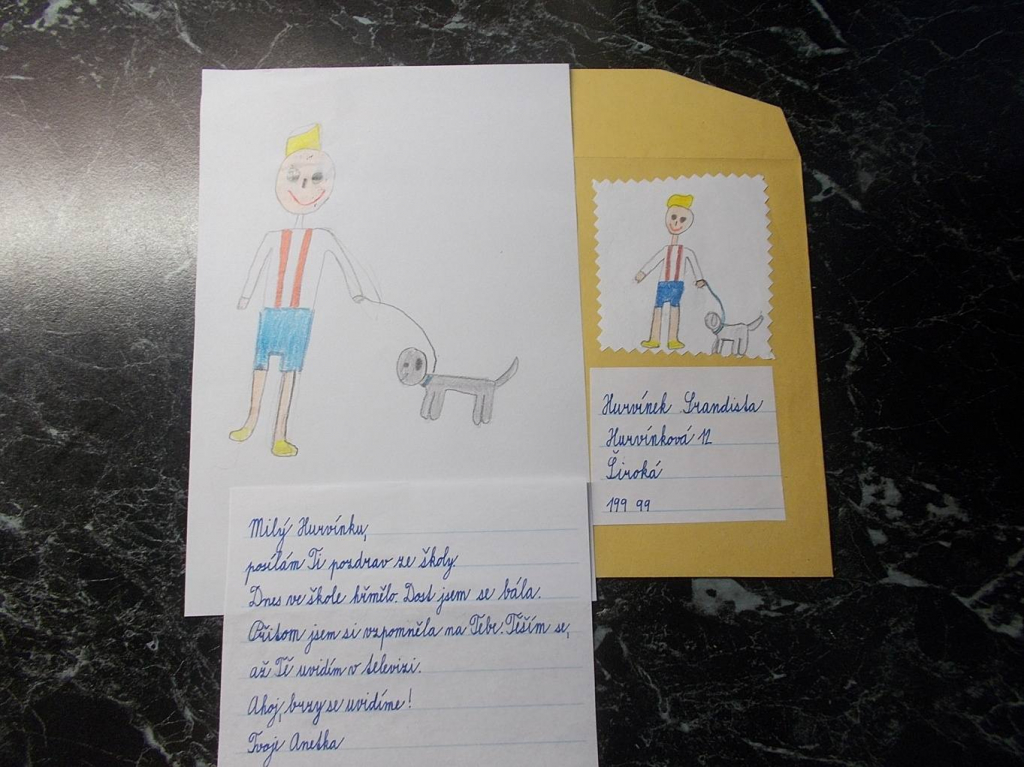 Milý Hurvínku,
posílám Ti pozdrav ze školy.
Dnes ve škole hřmělo. Dost jsem se bála.
Přitom jsem si vzpomněla na Tebe. Těším se,
až Tě uvidím v televizi.
Ahoj, brzy se uvidíme!
Tvoji Anetka
Hurvínek Srandista
Hurvínková 12
Široká
199 99